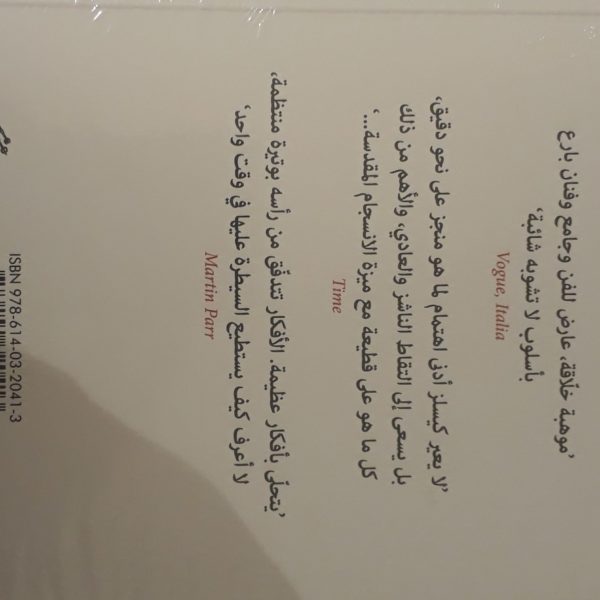 ’موهبة خلّاقة، عارض للفن وجامع وفنان بارع
بأسلوب لا تشوبه شائبة‘
Vogue, Italia
’لا يعير كيسلز أدنى اهتمام لما هو منجز على نحو دقيق،
بل يسعى إلى التقاط الناشز والعادي، والأهم من ذلك
كل ما هو على قطيعة مع ميزة الانسجام المقدسة...‘
Time
’يتحلّى بأفكار عظيمة. الأفكار تتدفّق من رأسه بوتيرة منتظمة،
لا أعرف كيف يستطيع السيطرة عليها في وقت واحد‘
Martin Parr
ISBN 978-614-03-2041-3